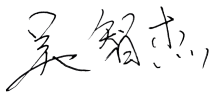 吴智杰